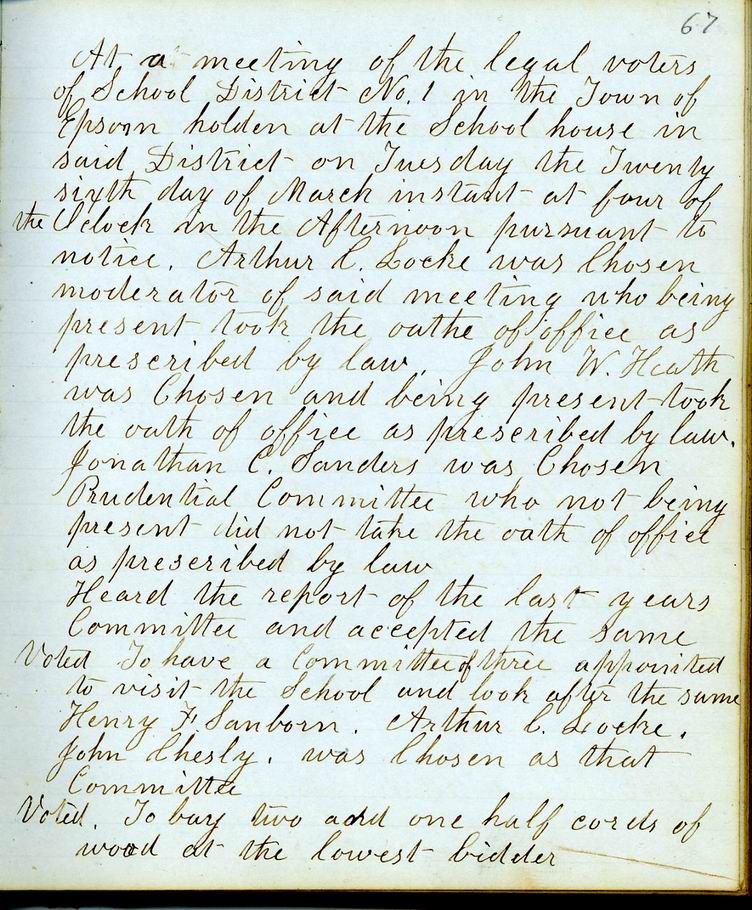 67
At a meeting of the legal voters
of School District No. 1 in the Town of
Epsom holden at the School house in
said District on Tuesday the Twenty
sixth day of March instant at four of
the Oclock in the Afternoon pursuant to
notice. Arthur C. Locke was Chosen
moderator of said meeting who being
present took the oathe of office as
prescribed by law. John W. Heath
was Chosen and being present took
the oath of office as prescribed by law.
Jonathan C. Sanders was Chosen
Prudential Committee who not being
present did not take the oath of office
as prescribed by law
Heard the report of the last years
Committee and accepted the same
Voted To have a Committee of three appointed
to visit the School and look after the same
Henry F. Sanborn. Arthur C. Locke.
John Chesly. was Chosen as that
Committee
Voted. To buy two and one half cords of
wood at the lowest bidder